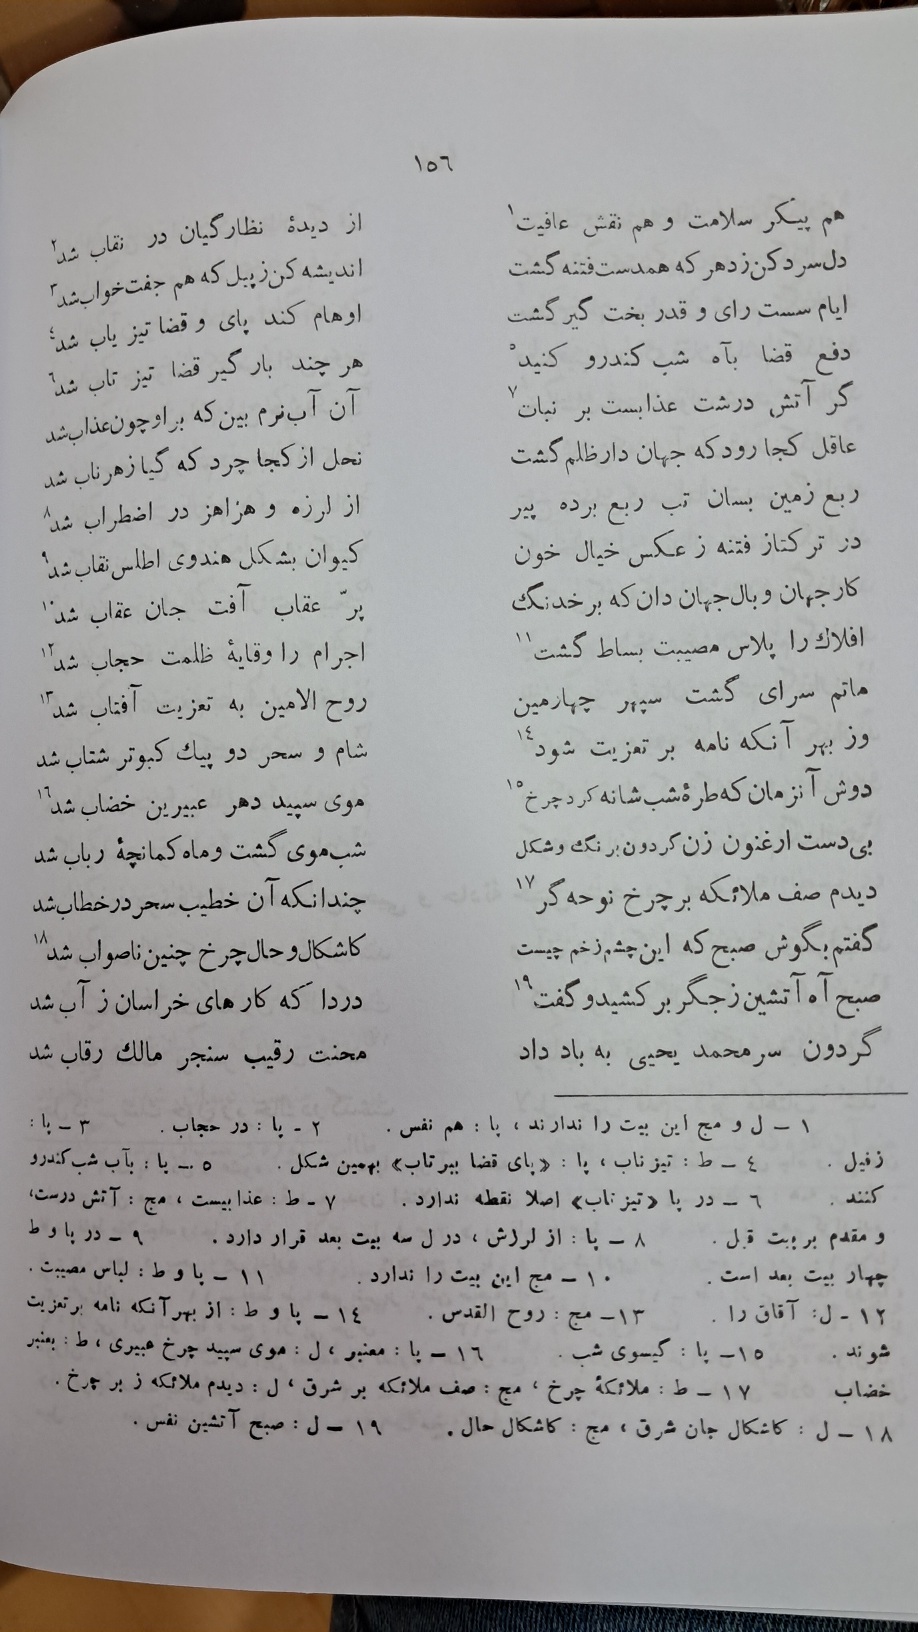 ١٥٦
هم پیکر سلامت و هم نقش عافیت١ از دیدهٔ نظارگیان در نقاب شد٢
دل‌سرد کن ز دهر که همدست فتنه گشت اندیشه کن ز پیل که هم جفت خواب شد٣
ایام سست رای و قدر بخت گیر گشت اوهام کند پای و قضا تیز یاب شد٤
دفع قضا بآه شب کندرو کنید٥ هر چند بار گیر قضا تیز تاب شد٦
گر آتش درشت عذابست بر نبات٧ آن آب نرم بین که بر او چون عذاب شد
عاقل کجا رود که جهان دار ظلم گشت نحل از کجا چرد که گیا زهر ناب شد
ربع زمین بسان تب ربع برده پیر از لرزه و هزاهز در اضطراب شد٨
در ترکتاز فتنه ز عکس خیال خون کیوان بشکل هندوی اطلس نقاب شد٩
کار جهان و بال جهان دان که بر خدنگ پرّ عقاب آفت جان عقاب شد١٠
افلاك را پلاس مصیبت بساط گشت١١ اجرام را وقایهٔ ظلمت حجاب شد١٢
ماتم سرای گشت سپهر چهارمین روح الامین به تعزیت آفتاب شد١٣
وز بهر آنکه نامه بر تعزیت شود١٤ شام و سحر دو پیك کبوتر شتاب شد
دوش آنزمان که طرهٔ شب شانه کرد چرخ١٥ موی سپید دهر عبیرین خضاب شد١٦
بی‌دست ارغنون زن گردون برنگ و شکل شب موی گشت و ماه کمانچهٔ رباب شد
دیدم صف ملائکه بر چرخ نوحه گر١٧ چندانکه آن خطیب سحر در خطاب شد
گفتم بگوش صبح که این چشم زخم چیست کاشکال و حال چرخ چنین ناصواب شد١٨
صبح آه آتشین ز جگر بر کشید و گفت١٩ دردا که کار های خراسان ز آب شد
گردون سر محمد یحیی به باد داد محنت رقیب سنجر مالك رقاب شد
١ – ل و مج این بیت را ندارند ، پا : هم نفس . ٢ – پا : در حجاب . ٣ – پا :
زفیل . ٤ – ط : تیز ناب ، پا : «پای قضا ببر تاب» بهمین شکل . ٥ – پا : بآب شب کندرو
کنند . ٦ – در پا «تیز ناب» اصلا نقطه ندارد . ٧ – ط : عذابیست ، مج : آتش درست،
و مقدم بر بیت قبل . ٨ – پا : از لرزش ، در ل سه بیت بعد قرار دارد . ٩ – در پا و ط
چهار بیت بعد است . ١٠ – مج این بیت را ندارد . ١١ – پا و ط : لباس مصیبت .
١٢ – ل: آفاق را . ١٣– مج : روح القدس . ١٤ – پا و ط : از بهر آنکه نامه بر تعزیت
شوند . ١٥– پا : گیسوی شب . ١٦ – پا : معنبر ، ل : موی سپید چرخ عبیری ، ط : بعنبر
خضاب ١٧ – ط : ملائکهٔ چرخ ، مج : صف ملائکه بر شرق ، ل : دیدم ملائکه ز بر چرخ .
١٨ – ل : کاشکال جان شرق ، مج : کاشکال حال . ١٩ – ل : صبح آتشین نفس .